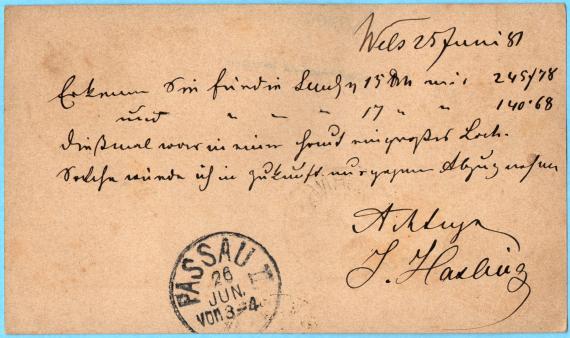 Wels 25 Juni 81
Erkennen Sie für die 15 mit 245/78
und " " " 17 " " 140·68
Dießmal war in einer Haut ein großes Loch.
Solche würde ich in Zukunft nur gegen Abzug nehmen
Achtung
J. Hasling
PASSAU I
26
JUN.
VON 3-4.